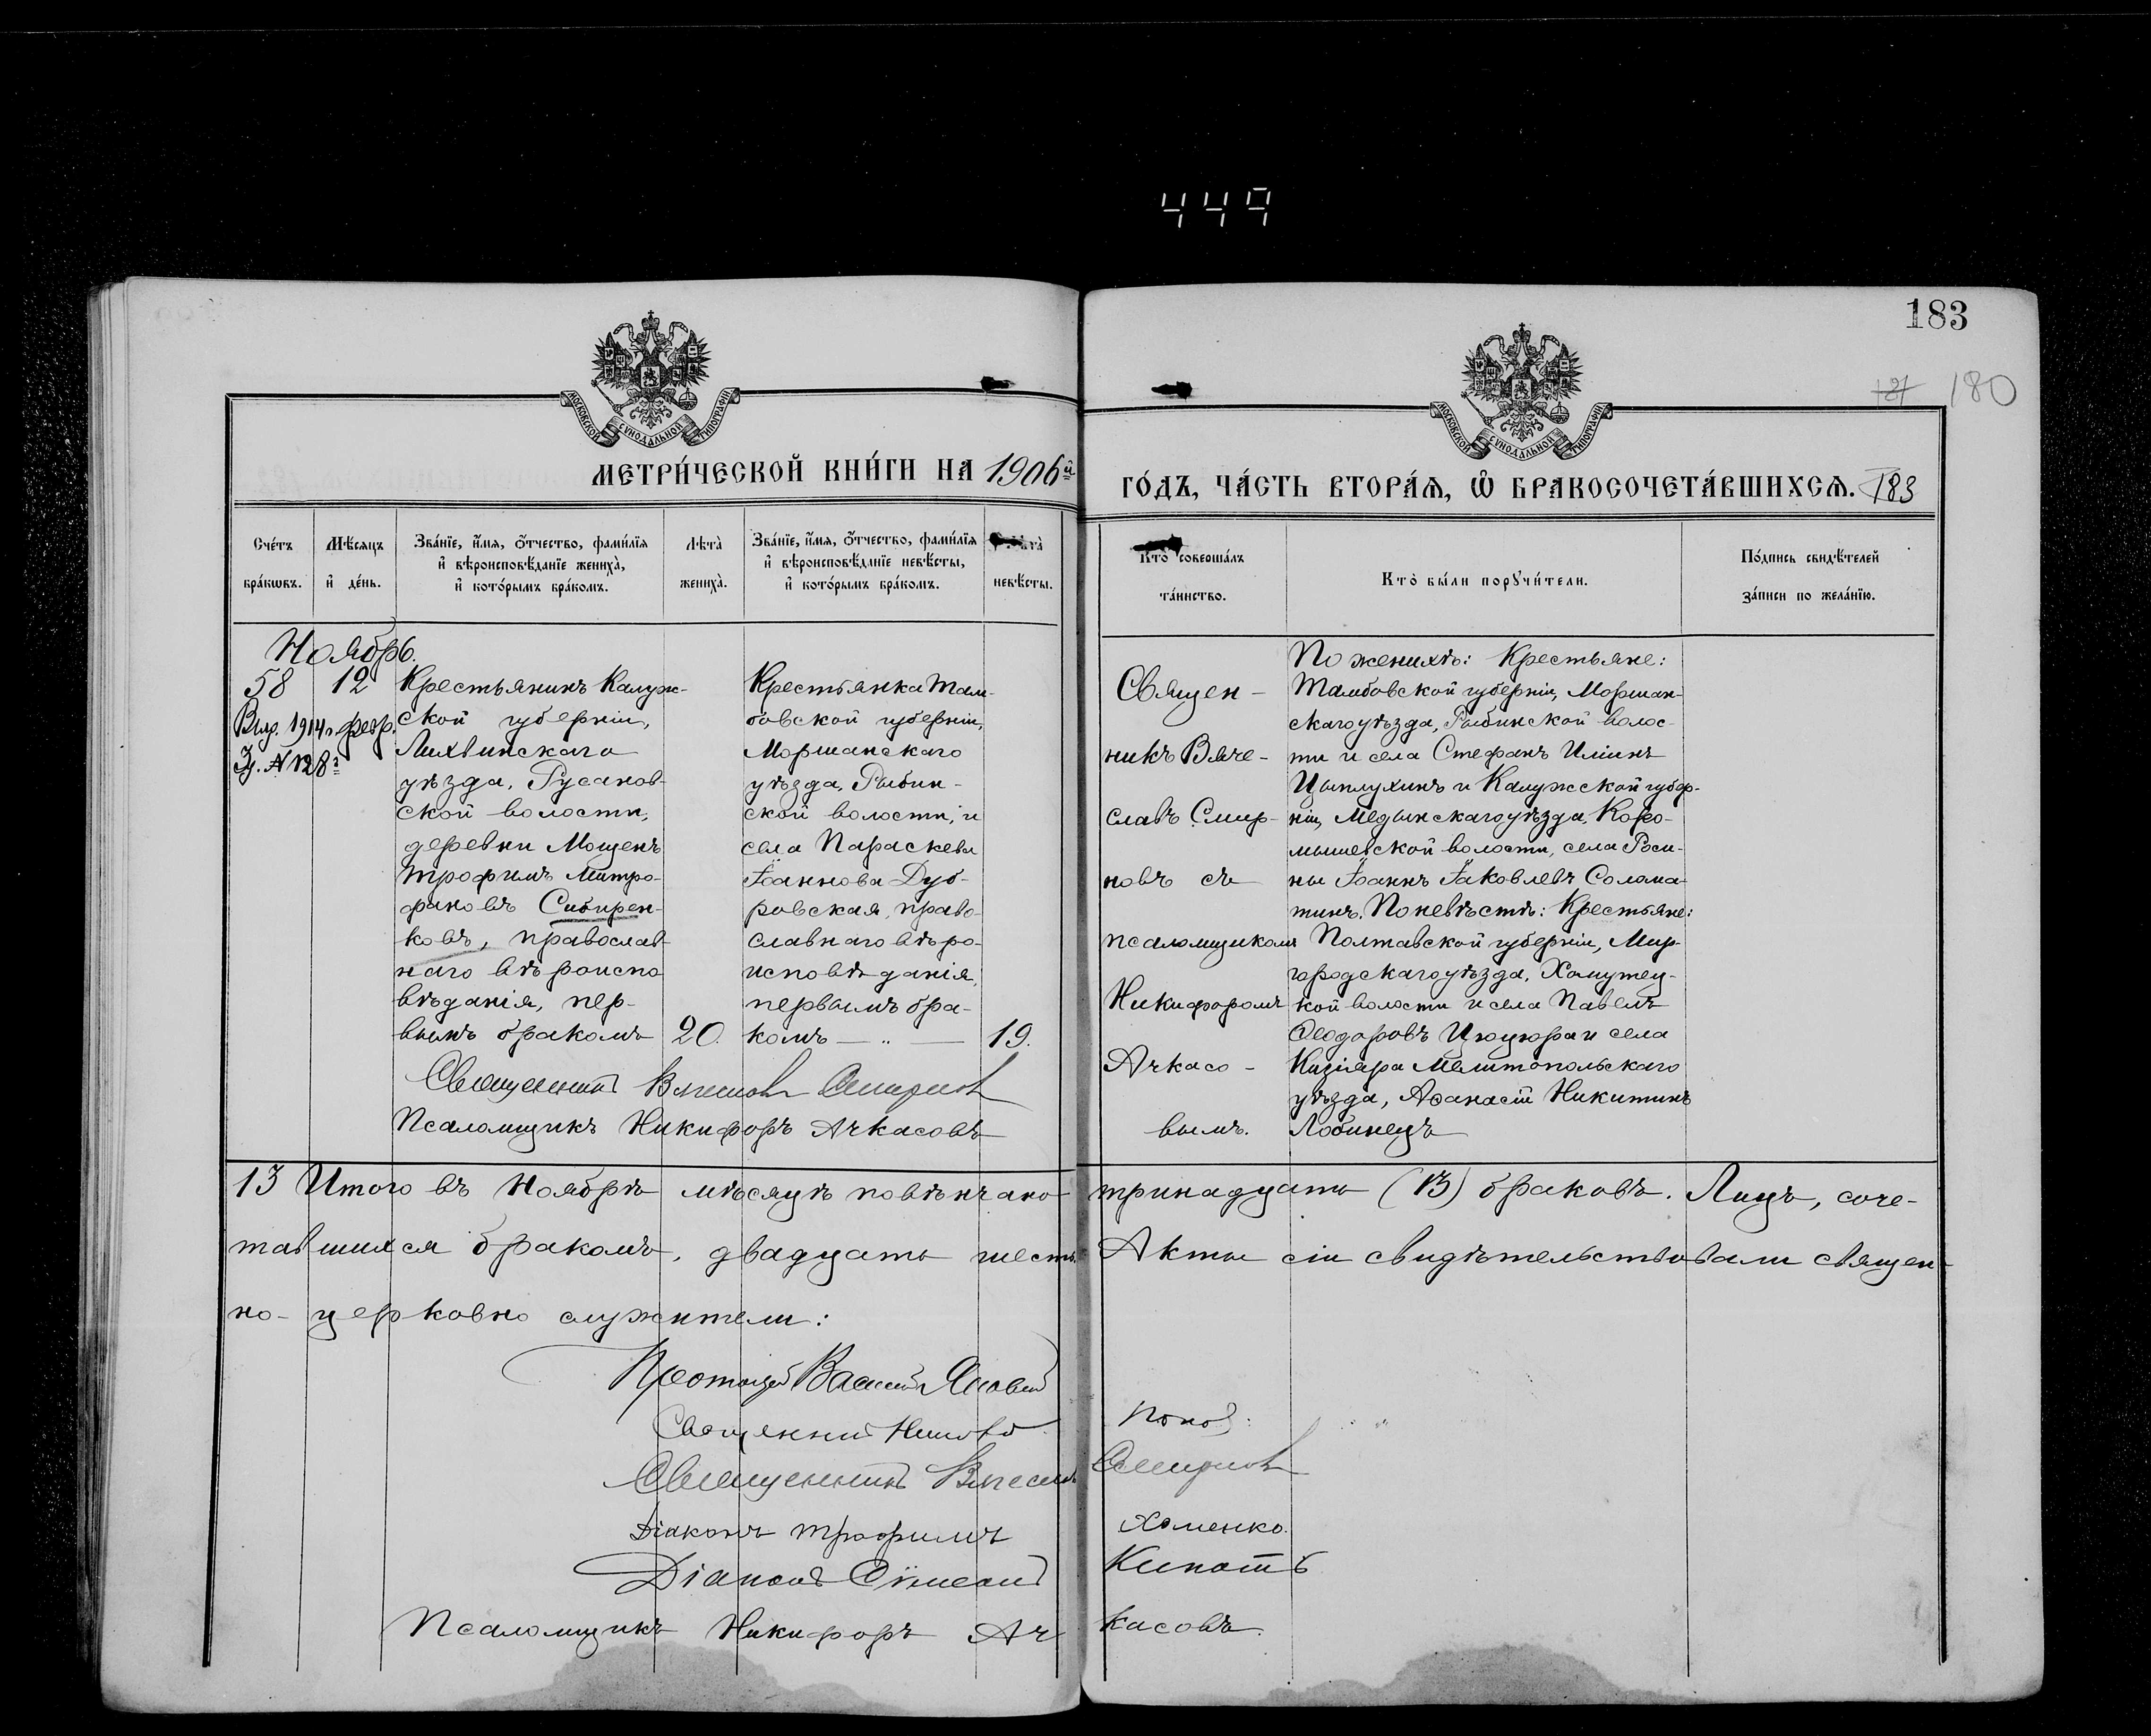 449
183
121 180
МОСКОВСКОЙ СУНОДАЛЬНОЙ ТИПОГРАФІИ
МОСКОВСКОЙ СУНОДАЛЬНОЙ ТИПОГРАФІИ
МЕТРИ́ЧЕСКОЙ КНИ́ГИ НА 1906й
ГО́ДЪ, ЧА́СТЬ ВТОРА́Ѧ, Ѡ БРАКОСОЧЕТА́ВШИХСѦ. 183
Сче́тъ бра́кѡвъ.
Мѣ́сѧцъ и де́нь.
Зва́нїе, и́мѧ, ѻ́тчество, фами́лїѧ
и вѣроисповѣ́данїе жениха̀,
и кото́рымъ бра́комъ.
Лѣта̀ жениха̀.
Зва́нїе, и́мѧ, ѻ́тчество, фами́лїѧ
и вѣроисповѣ́данїе невѣ́сты,
и кото́рымъ бра́комъ.
невѣ́сты.
Кто̀ соверша́лъ
та́инство.
Кто̀ бы́ли порꙋчи́тели.
По́дпись свидѣ́телей
за́писи по жела́нїю.
Ноябрь.
58
12
Выд. 1914 г. февр.
3 у. № 128
Крестьянинъ Калуж-
ской губерніи,
Лихвинскаго
уѣзда, Русанов-
ской волости,
деревни Мощенъ
Трофимъ Митро-
фановъ Сибирен-
ковъ, православ-
наго вѣроиспо
вѣданія, пер-
вымъ бракомъ
20.
Крестьянка Там-
бовской губерніи,
Моршанскаго
уѣзда, Рыбин-
ской волости, и
села Параскева
Іоаннова Дуб-
ровская, право-
славнаго вѣро-
исповѣданія,
первымъ бра-
комъ — „ —
19.
Священникъ Вячеславъ Смирновъ
Псаломщикъ Никифоръ Ачкасовъ
Священ-
никъ Вяче-
славъ Смир-
новъ съ
псаломщикомъ
Никифоромъ
Ачкасо-
вымъ.
По женихѣ: Крестьяне:
Тамбовской губерніи, Моршан-
скаго уѣзда, Рыбинской волос-
ти и села Стефанъ Иліинъ
Цыплухинъ и Калужской губер-
ніи, Медынскаго уѣзда, Коро-
мышевской волости, села Роси-
ны Іоаннъ Іаковлевъ Солома-
тинъ. По невѣстѣ: Крестьяне:
Полтавской губерніи, Мир-
городскаго уѣзда, Хомутец-
кой волости и села Павелъ
Ѳеодоровъ Цюцюра и села
Низіяра Мелитопольскаго
уѣзда, Аѳанасій Никитинъ
Лобинецъ
13 Итого въ Ноябрѣ мѣсяцѣ повѣнчано тринадцать (13) браковъ. Лицъ, соче-
тавшихся бракомъ, двадцать шесть. Акты сіи свидѣтельствовали священ-
но-церковно служители:
Протоіерей Василій
Священникъ Поповъ.
Священникъ Вячеславъ Смирновъ
Діаконъ Трофимъ Хоменко.
Діаконъ Сѵмеонъ
Псаломщикъ Никифоръ Ачкасовъ.